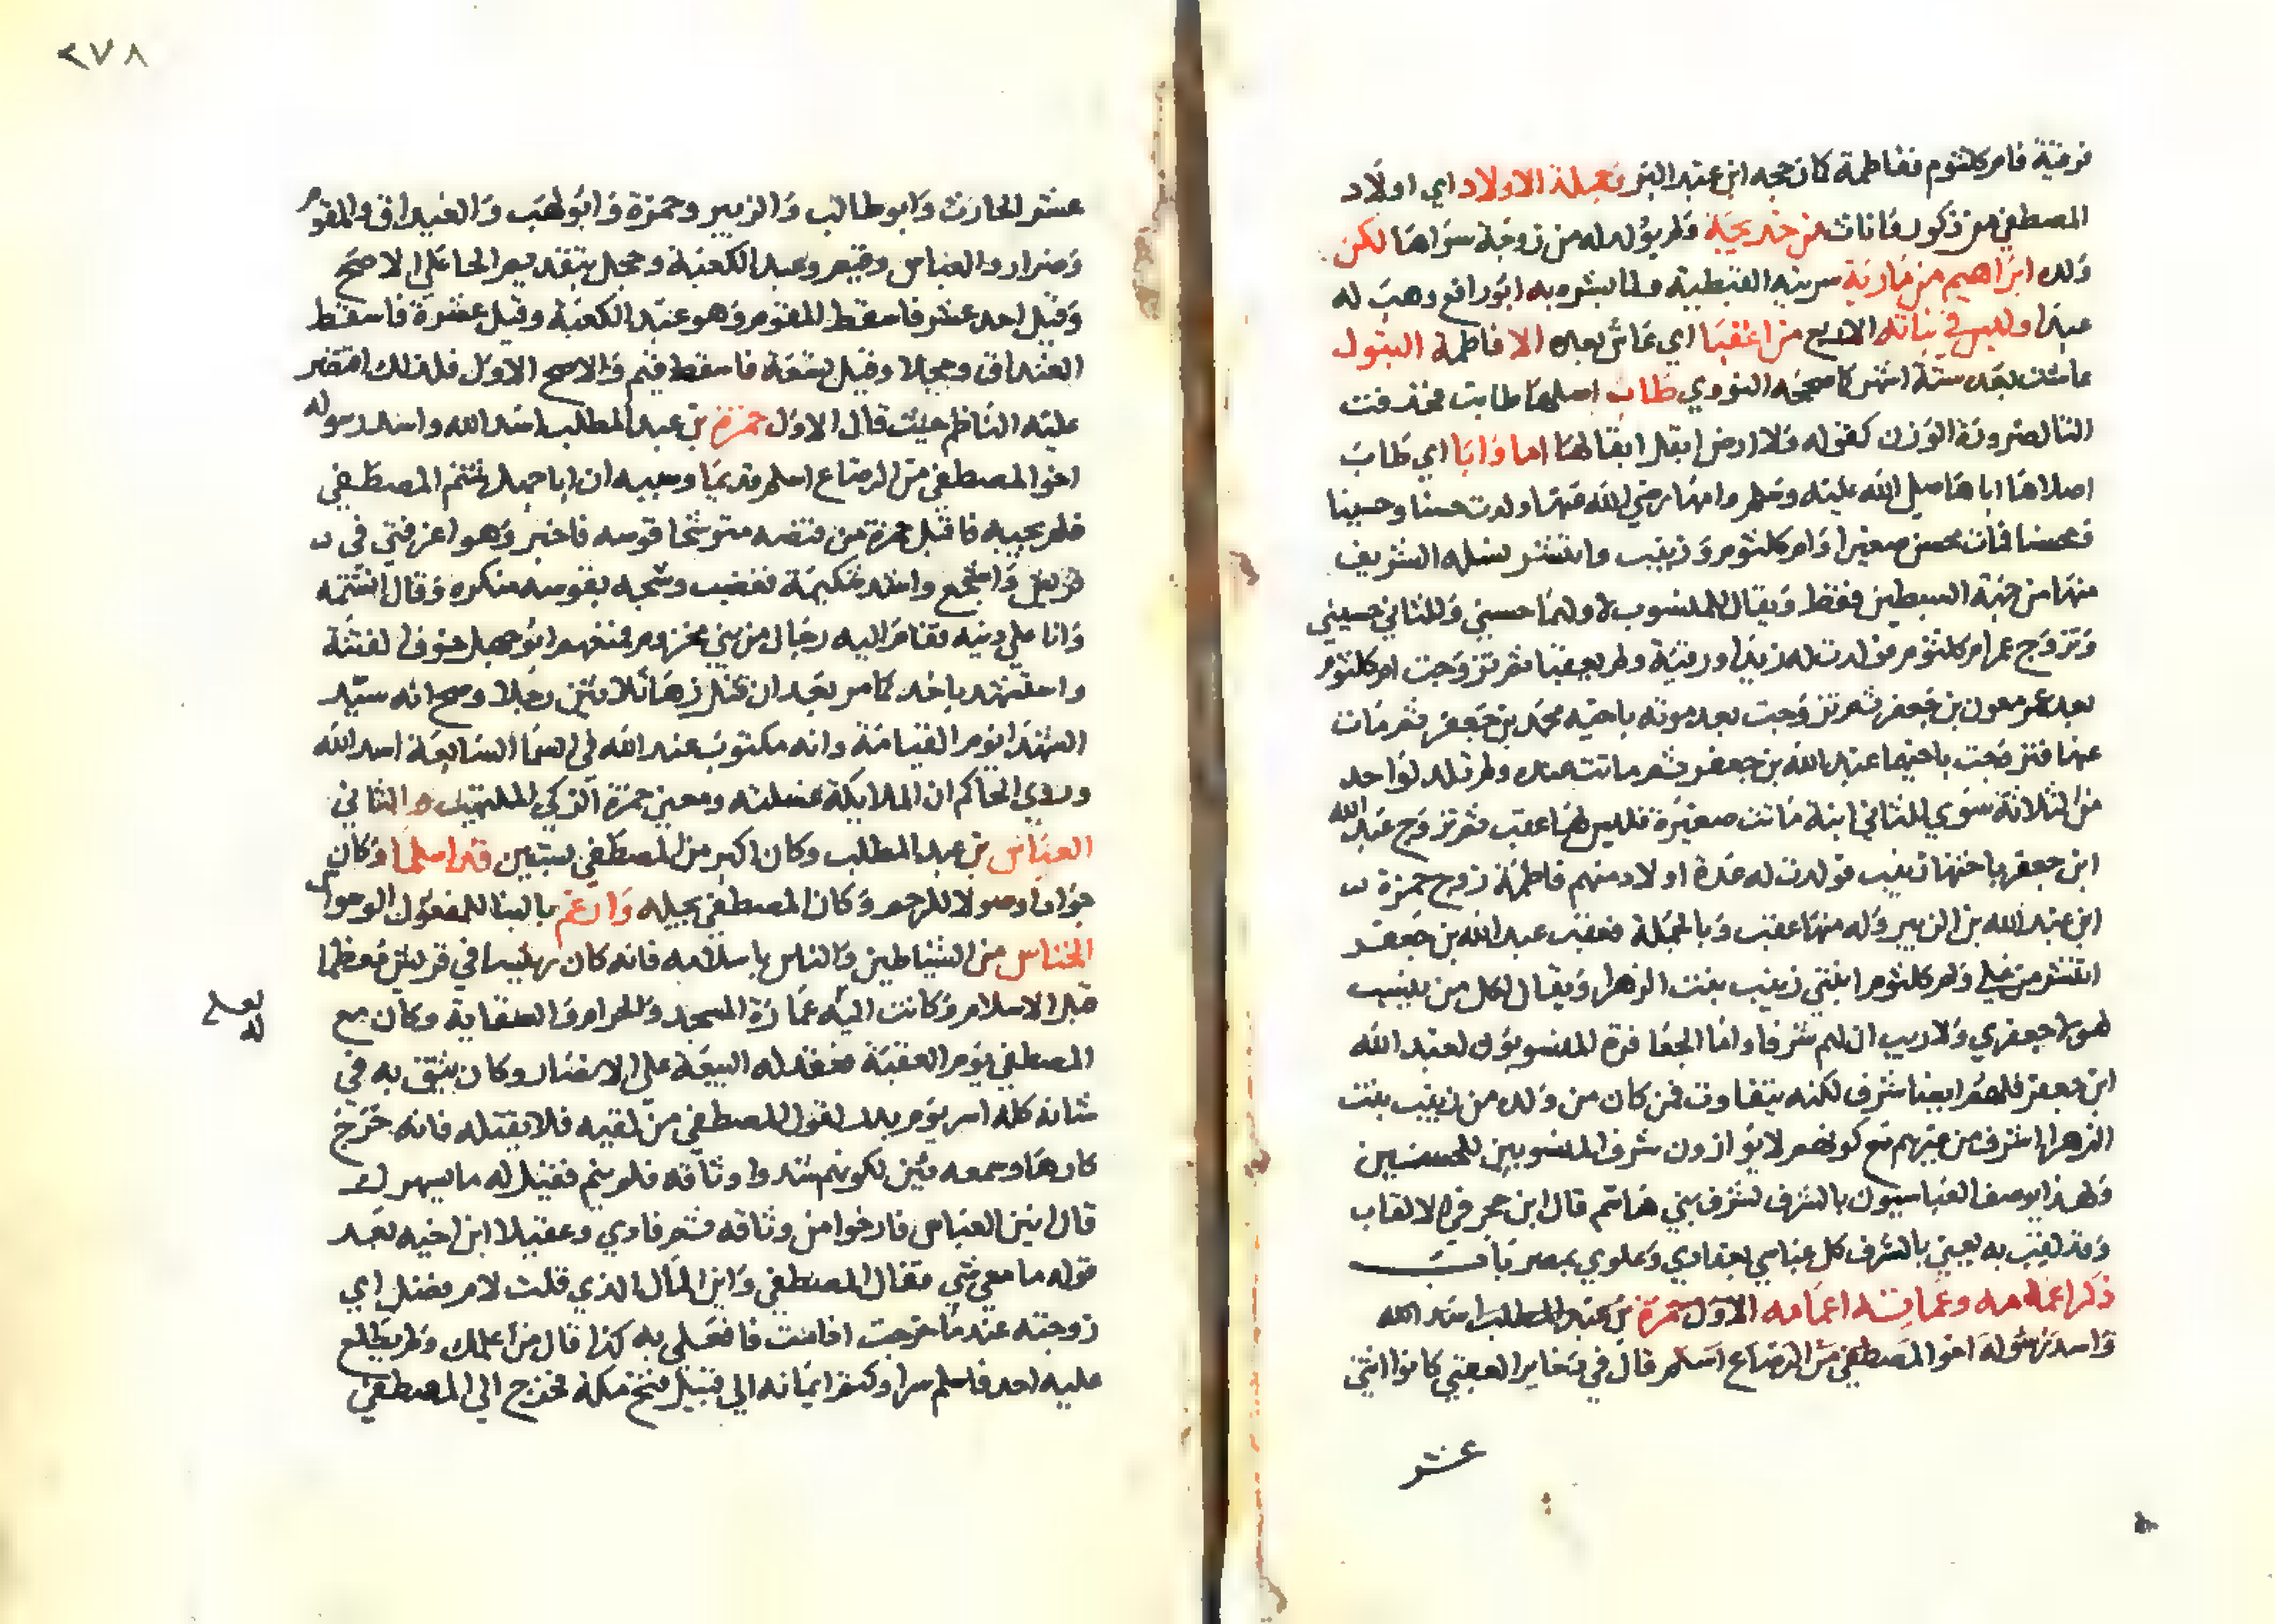 فرقية فام كلثوم ففاطمة كما رجحه ابن عبد البر بجملة الاولاد اي اولاد
المصطفى من ذكور واناث من خديجة ولم يولد له من زوجة سواها لكن
ولده ابراهيم من مارية سريته القبطية ولما بشره به ابو رافع وهب له
عبدا وليس في بناته الاربع من اعقبا اي عاش بعده الا فاطمة البتول
عاشت بعده ستة اشهر كما صححه النووي طاب اصلها طابت فحذفت
التا لضرورة الوزن كقوله ولا ارض ابقل ابقالها اما وابا اي طاب
اصلاها اباها صلى الله عليه وسلم وامها رضي الله عنها ولدت حسنا وحسينا
ومحسنا فمات محسن صغيرا وام كلثوم وزينب وانتشر نسله الشريف
منها من جهة السبطين فقط ويقال للمنسوب لاولهما حسني وللثاني حسيني
وتزوج عمر ام كلثوم فولدت له زيدا ورقية ولم يعقبا ثم تزوجت ام كلثوم
بعد عمر بعون بن جعفر ثم تزوجت بعد موته باخيه محمد بن جعفر ثم مات
عنها فتزوجت باخيهما عبد الله بن جعفر ثم ماتت عنده ولم تلد لواحد
من الثلاثة سوى للثاني ابنة ماتت صغيرة فليس لها عقب ثم تزوج عبد الله
ابن جعفر باختها زينب فولدت له عدة اولاد منهم فاطمة زوج حمزة
ابن عبد الله بن الزبير وله منها عقب وبالجملة فعقب عبد الله بن جعفر
انتشر من علي وام كلثوم ابنتي زينب بنت الزهرا ويقال لكل من ينسب
لهولا جعفري ولا ريب ان لهم شرفا واما الجعافرة المنسوبون لعبد الله
ابن جعفر فلهم ايضا شرف لكنه يتفاوت فمن كان من ولده من زينب بنت
الزهرا اشرف من غيرهم مع كونهم لا يوازون شرف المنسوبين للحسنين
ولهذا يوصف العباسيون بالشرف لشرف بني هاشم قال ابن حجر في الالقاب
وقد لقب به يعني بالشرف كل عباسي ببغداد وعلوي بمصر باب
ذكر اعمامه وعماته اعمامه الاول حمزة بن عبد المطلب اسد الله
واسد رسوله اخو المصطفى من الرضاع اسلم قال في ذخاير العقبى كانوا اثني
عشر
٢٧٨
عشر الحارث وابو طالب والزبير وحمزة وابو لهب والغيداق والمقوم
وضرار والعباس وقثم وعبد الكعبة وحجل بتقديم الحا على الاصح
وقيل احد عشر فاسقط المقوم وهو عبد الكعبة وقيل عشرة فاسقط
الغيداق وحجلا وقيل تسعة فاسقط قثم والاصح الاول فلذلك اقتصر
عليه الناظم حيث قال الاول حمزة بن عبد المطلب اسد الله واسد رسوله
اخو المصطفى من الرضاع اسلم قديما وسببه ان ابا جهل شتم المصطفى
فلم يجيبه فاقبل حمزة من قنصه متوشحا قوسه فاخبر وهو اعز فتى في
قريش واشجع واشد شكيمة فغضب وشجه بقوسه منكره وقال اتشتمه
وانا على دينه فقام اليه رجال من بني مخزوم فمنعهم ابو جهل خوف الفتنة
واستشهد باحد كما مر بعد ان قتل زها ثلاثين رجلا وصح انه سيد
الشهدا يوم القيامة وانه مكتوب عند الله في السما السابعة اسد الله
وروى الحاكم ان الملايكة غسلته والثاني
العباس بن عبد المطلب وكان اكبر من المصطفى بسنتين قد اسلما وكان
جوادا وصولا للرحم وكان المصطفى يجله وارغم بالبنا للمفعول
الخناس من الشياطين والناس باسلامه فانه كان رئيسا في قريش معظما
قبل الاسلام وكانت اليه عمارة المسجد والحرام والسقاية وكان مع
المصطفى يوم العقبة فعقد له البيعة على الانصار وكان يثق به في
شانه كله اسر يوم بدر لقول المصطفى من لقيه فلا يقتله فانه خرج
كارها وسمعه يئن لكونهم شدوا وثاقه فلم ينم فقيل له ما يسهرك
قال انين العباس فارخوا من وثاقه ثم فادي وعقيلا ابن اخيه بعد
قوله ما معي شي فقال المصطفى واين المال الذي قلت لام فضل اي
زوجته عندما خرجت اذا مت فافعلي به كذا قال من اعلمك ولم يطلع
عليه احد فاسلم سرا وكتم ايمانه الى قبيل فتح مكة فخرج الى المصطفى